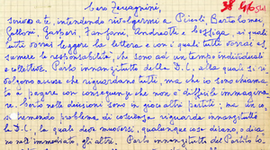 Caro Zaccagnini,
scrivo a te, intendendo rivolgermi a Piccoli, Bartolomei,
Galloni, Gaspari, Fanfani, Andreotti e Cossiga, ai quali
tutti vorrai leggere la lettera e con i quali tutti vorrai as
sumere le responsabilità, che sono ad un tempo individuali
e collettive. Parlo innanzitutto della D.C. alla quale si ri
volgono accuse che riguardano tutti, ma che io sono chiama
to a pagare con conseguenze che non è difficile immagina
re. Certo nelle decisioni sono in gioco altri partiti; ma un co
sì tremendo problema di coscienza riguarda innanzitutto
la D.C., la quale deve muoversi, qualunque cosa dicano, o dica
no nell'immediato, gli altri. Parlo innanzitutto del